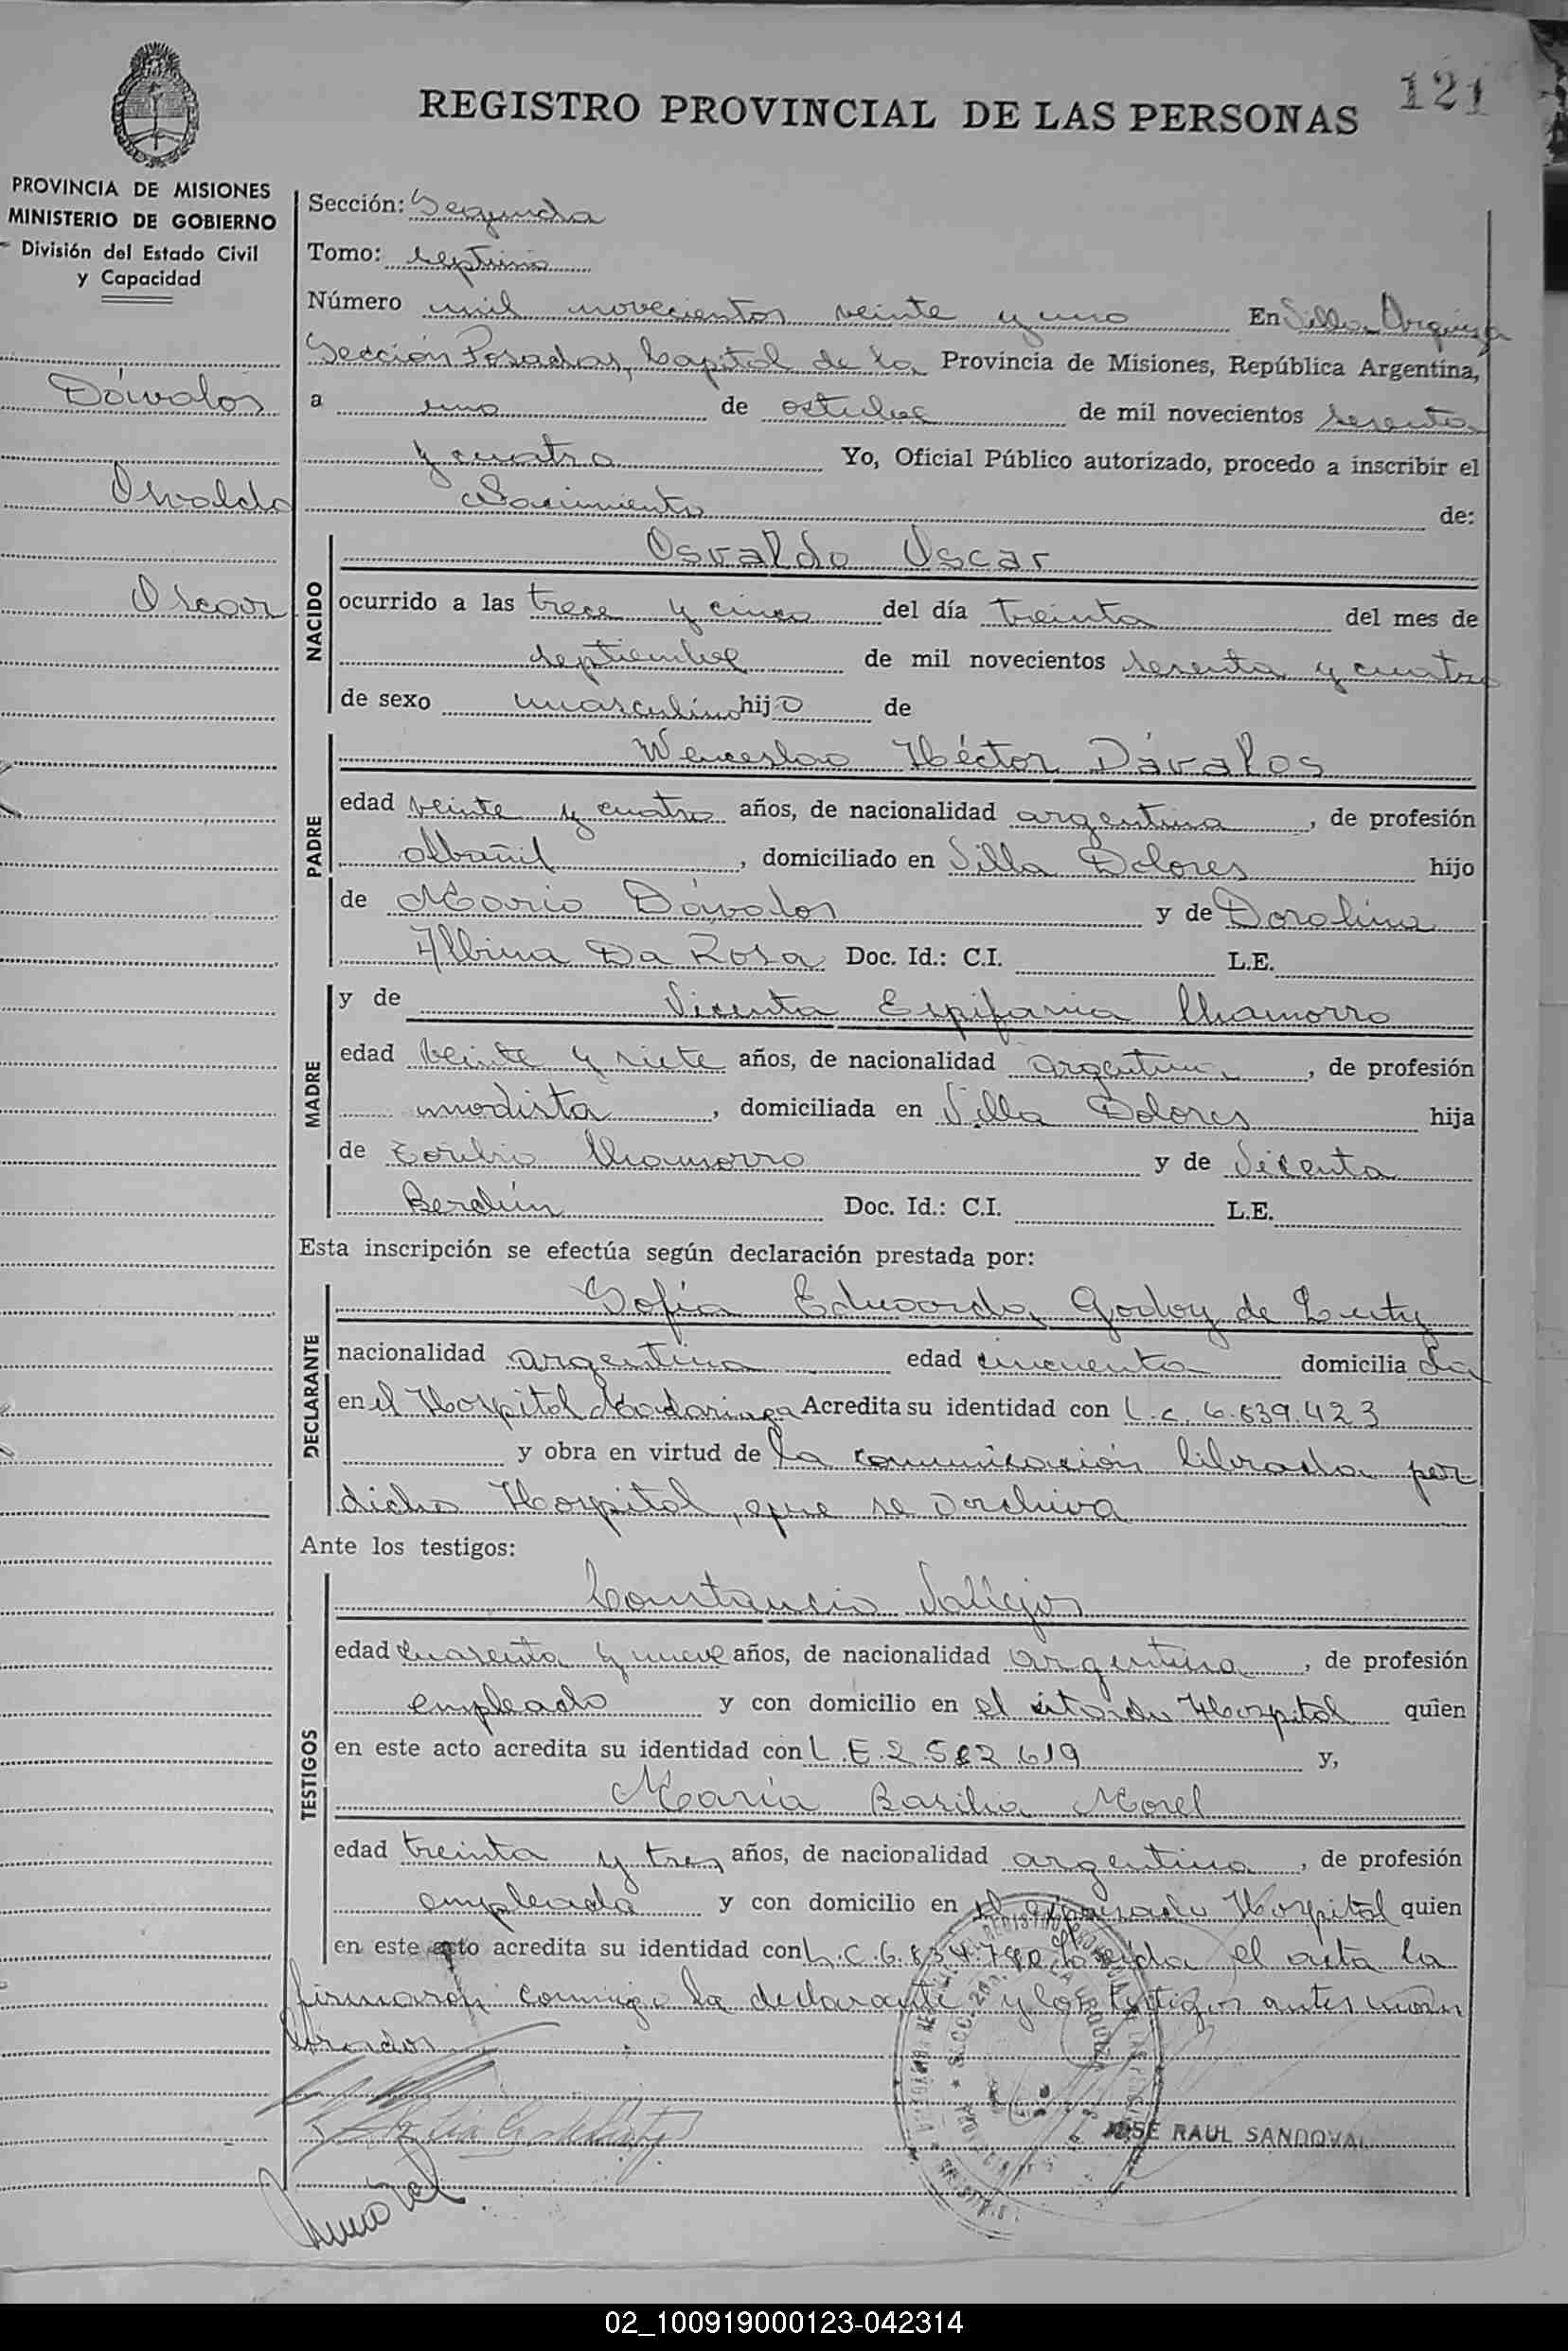 121
REGISTRO PROVINCIAL DE LAS PERSONAS
PROVINCIA DE MISIONES
MINISTERIO DE GOBIERNO
División del Estado Civil
y Capacidad
Dávalos
Osvaldo
Oscar
Sección: Segunda
Tomo: septimo
Número mil novecientos veinte y uno En Villa Urquiza
Sección Posadas, Capital de la Provincia de Misiones, República Argentina,
a uno de octubre de mil novecientos sesenta
y cuatro Yo, Oficial Público autorizado, procedo a inscribir el
Nacimiento de:
NACIDO
Osvaldo Oscar
ocurrido a las trece y cinco del día treinta del mes de
septiembre de mil novecientos sesenta y cuatro
de sexo masculino hijo de
PADRE
Wenceslao Héctor Dávalos
edad veinte y cuatro años, de nacionalidad argentina, de profesión
albañil, domiciliado en Villa Dolores hijo
de Mario Dávalos y de Doralina
Albina Da Rosa Doc. Id.: C.I. L.E.
MADRE
y de Vicenta Epifania Chamorro
edad veinte y siete años, de nacionalidad argentina, de profesión
modista, domiciliada en Villa Dolores hija
de Toribio Chamorro y de Vicenta
Berdún Doc. Id.: C.I. L.E.
Esta inscripción se efectúa según declaración prestada por:
DECLARANTE
Sofía Eduarda Godoy de Luty
nacionalidad argentina edad cincuenta domiciliada
en el Hospital Madariaga Acredita su identidad con L.C. 6.839.423
y obra en virtud de la comunicación librada por
dicho Hospital, que se archiva
Ante los testigos:
TESTIGOS
Constancio Vallejos
edad cuarenta y nueve años, de nacionalidad argentina, de profesión
empleado y con domicilio en el citado Hospital quien
en este acto acredita su identidad con L.E. 2.582.619 y,
María Basilia Morel
edad treinta y tres años, de nacionalidad argentina, de profesión
empleada y con domicilio en el expresado Hospital quien
en este acto acredita su identidad con L.C. 6.834.780 Leída el acta la
firmaron conmigo la declarante y los testigos antes nom
brados
JOSE RAUL SANDOVAL
02_100919000123-042314